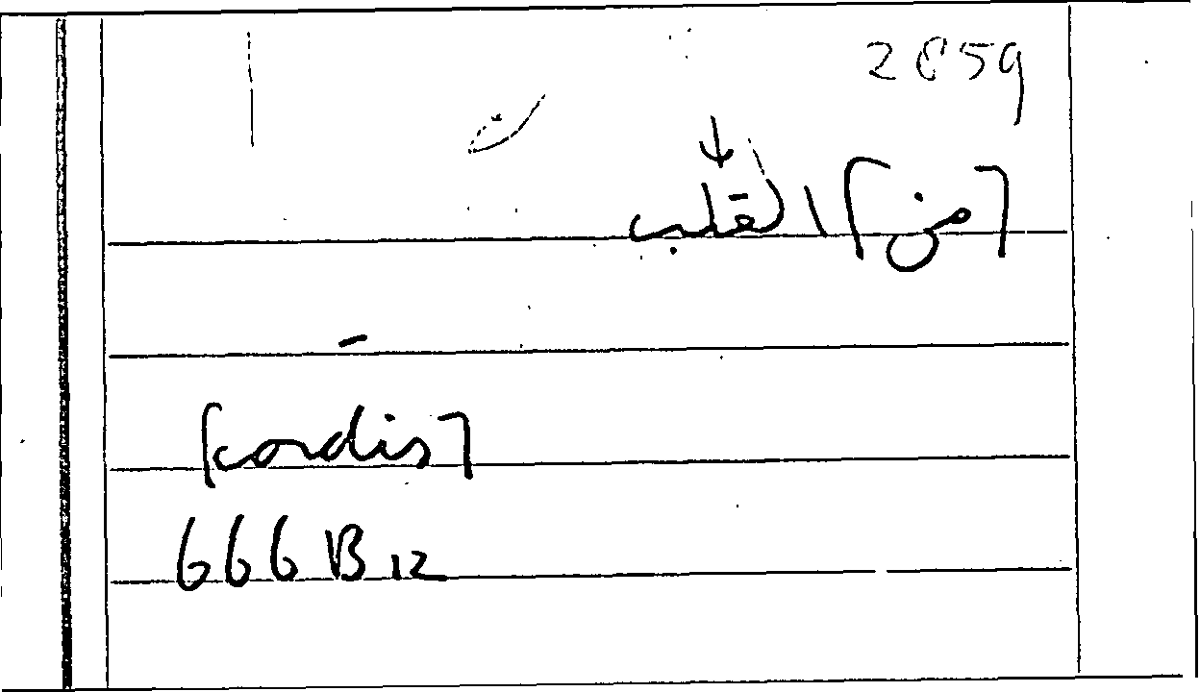 2859
↓
[من] القلب
[cordis]
666 B 12